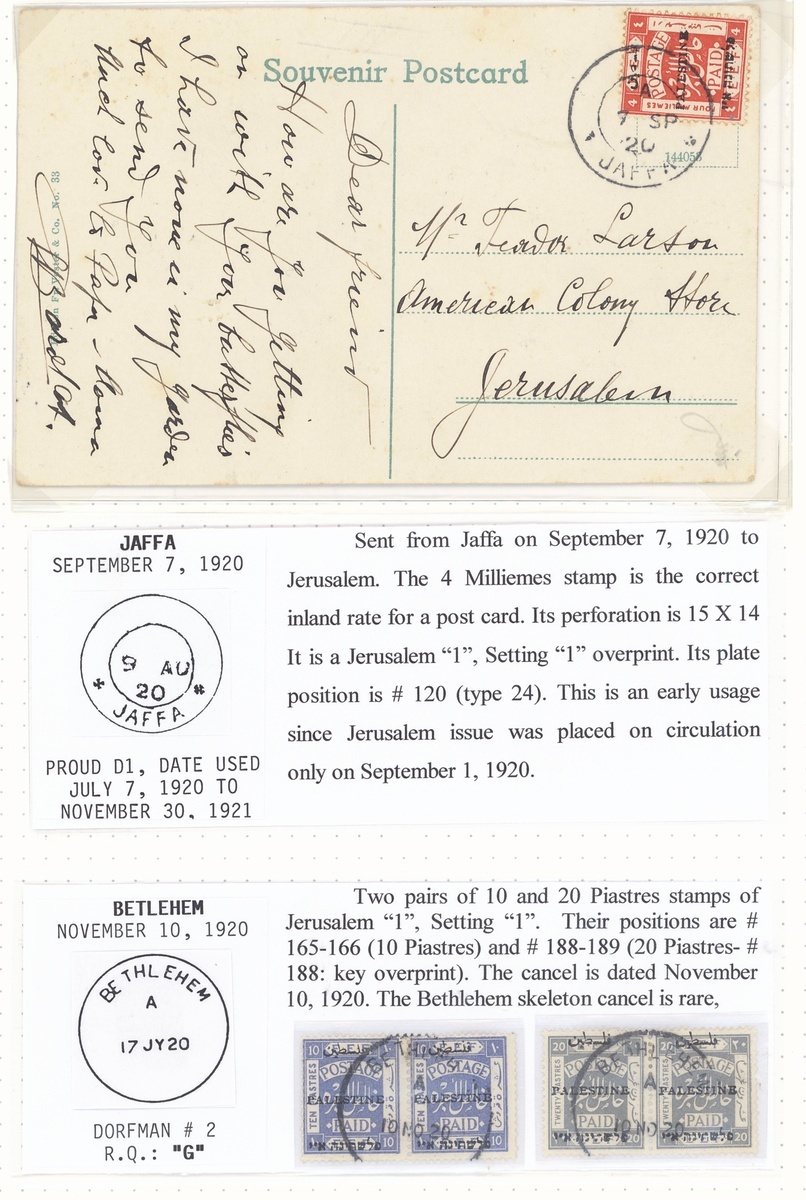 Souvenir Postcard
Dear friend
How are you getting
on with your butterflies
I have none in my garden
to send you
Much love to Papa & Mama
& Co. No. 33
POSTAGE
PALESTINE
PAID
FOUR MILLIEMES
4 4
A
7 SP
20
JAFFA
144055
Mr Teador Larson
American Colony Store
Jerusalem
JAFFA
SEPTEMBER 7, 1920
9 AU
20
* JAFFA *
PROUD D1, DATE USED
JULY 7, 1920 TO
NOVEMBER 30, 1921
Sent from Jaffa on September 7, 1920 to
Jerusalem. The 4 Milliemes stamp is the correct
inland rate for a post card. Its perforation is 15 X 14
It is a Jerusalem “1”, Setting “1” overprint. Its plate
position is # 120 (type 24). This is an early usage
since Jerusalem issue was placed on circulation
only on September 1, 1920.
BETLEHEM
NOVEMBER 10, 1920
BETHLEHEM
A
17 JY20
DORFMAN # 2
R.Q.: "G"
Two pairs of 10 and 20 Piastres stamps of
Jerusalem “1”, Setting “1”. Their positions are #
165-166 (10 Piastres) and # 188-189 (20 Piastres- #
188: key overprint). The cancel is dated November
10, 1920. The Bethlehem skeleton cancel is rare,
10 فلسطين 10 فلسطين ١٠
POSTAGE POSTAGE
TEN PIASTRES TEN PIASTRES
PALESTINE PALESTINE
PAID PAID
פלשתינה א״י פלשתינה א״י
10 NO 20
20 فلسطين 20 فلسطين ٢٠
POSTAGE POSTAGE
TWENTY PIASTRES TWENTY PIASTRES
PALESTINE PALESTINE
PAID PAID
פלשתינה א״י פלשתינה א״י
10 NO 20